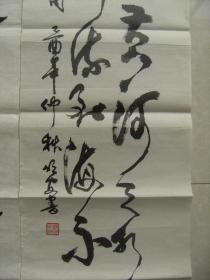 黄河之水
流到海不
乙酉年仲秋
书